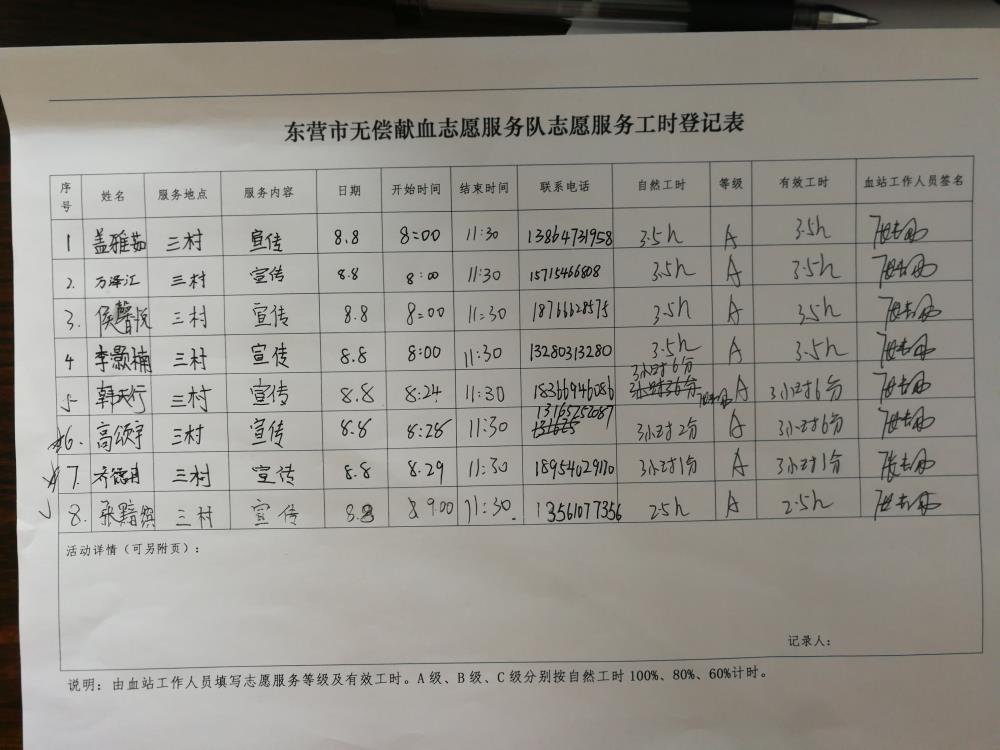 东营市无偿献血志愿服务队志愿服务工时登记表
序号 姓名 服务地点 服务内容 日期 开始时间 结束时间 联系电话 自然工时 等级 有效工时 血站工作人员签名
1 盖雅茹 三村 宣传 8.8 8:00 11:30 13864731958 3.5h A 3.5h
2. 万泽江 三村 宣传 8.8 8:00 11:30 15715466808 3.5h A 3.5h
3. 侯馨悦 三村 宣传 8.8 8:00 11:30 18766628575 3.5h A 3.5h
4 李灏楠 三村 宣传 8.8 8:00 11:30 13280313280 3.5h A 3.5h
5 韩天行 三村 宣传 8.8 8:24 11:30 18366946086 3小时6分 A 3小时6分
6. 高颂宇 三村 宣传 8.8 8:28 11:30 13165252087 3小时2分 A 3小时6分
7. 三村 宣传 8.8 8.29 11:30 18954029170 3小时1分 A 3小时1分
8. 张 三村 宣传 8.8 9:00 11:30. 13561077356 2.5h A 2.5h
活动详情（可另附页）：
记录人：
说明：由血站工作人员填写志愿服务等级及有效工时。A级、B级、C级分别按自然工时100%、80%、60%计时。